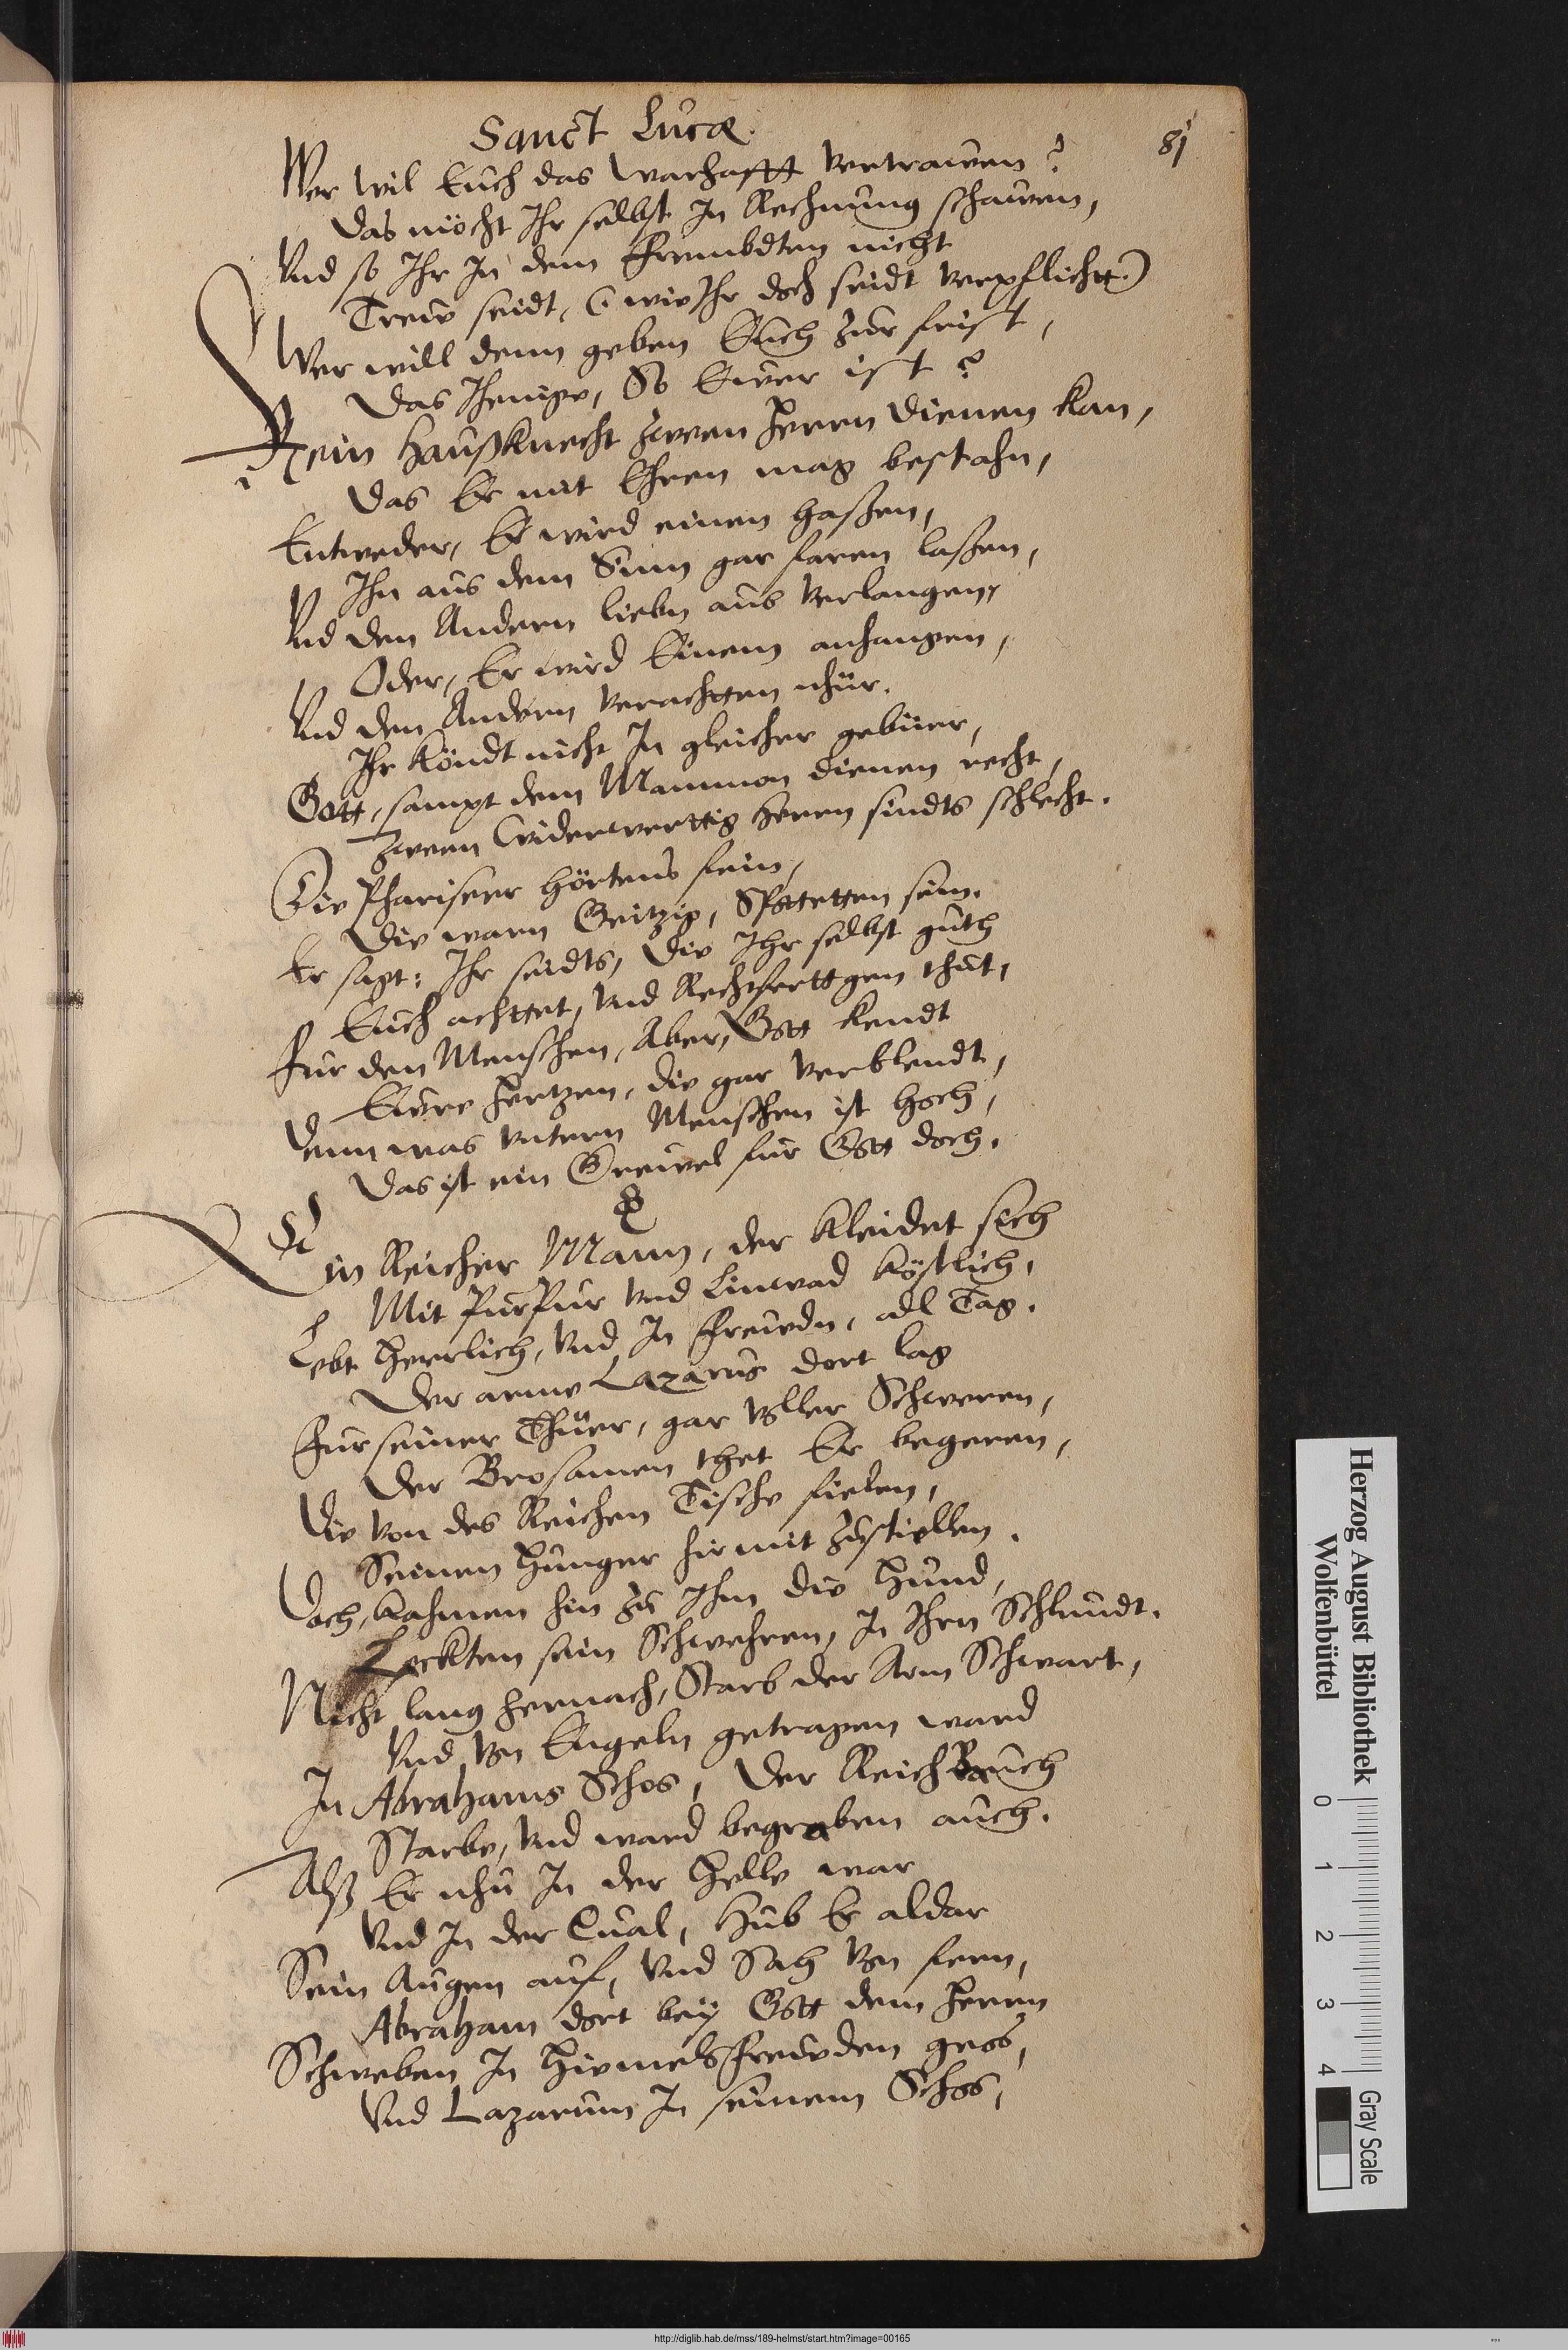 Sanct Lucæ.
81
Wer wil Euch das warhafft vertrawen?
Das möcht Ihr selbst In Rechnung schawen,
Und so Ihr In dem Frembdten nicht
Trew seidt, (wie Ihr doch seidt verpflicht)
Wer will denn geben Euch zur frist,
Das Ihenige, So Ewer ist?
Kein Haußknecht zween Herrn dienen kan,
Das Er mit Ehren mag bestahn,
Entweder, Er wird einen haßen,
Ihn aus dem Sinn gar faren laßen,
Und den Andern liebn aus verlangen,
Oder, Er wird Einem anhangen,
Und den Andern verachten nhür.
Ihr köndt nicht In gleicher gebüer,
Gott, sampt dem Mammon dienen recht,
Zween widerwertig Herrn sindts schlecht.
Die Phariseer hörtens fein,
Die warn Geitzig, Spottetten sein.
Er sagt: Ihr seidts, die Ihr selbst guth
Euch achttet, und Rechtferttgen thut,
Fur den Menschen, Aber, Gott kendt
Ewre Hertzen, die gar verblendt,
Denn was untern Menschen ist hoch,
Das ist ein Grewel fur Gott doch.
Ein Reicher Mann, der kleidet sich
Mit Purpur und Linwad köstlich,
Lebt Herrlich, und In Frewdn, all Tag.
Der arme Lazarus dort lag
Fur seiner Thüer, gar voller Schweren,
Der Brosamen thet Er begeren,
Die von des Reichen Tische fielen,
Seinen Hunger hirmit zustiellen.
Doch, kahmen hin zu Ihm die Hund,
Leckten sein Schwehren, In Ihrn Schlundt.
Nicht lang hernach, Starb der Arm Schwart,
Und von Engeln getragen ward
In Abrahams Schos, Der Reich Bauch
Starbe, und ward begraben auch.
Alß Er nhu In der Helle war
Und In der Qual, Hub Er aldar
Sein Augen auf, und Sah von fern,
Abraham dort bey Gott dem Herrn
Schweben In Himelsfrewden gros,
Und Lazarum In seinem Schos,
Herzog August Bibliothek
Wolfenbüttel
0 1 2 3 4
Gray Scale
http://diglib.hab.de/mss/189-helmst/start.htm?image=00165